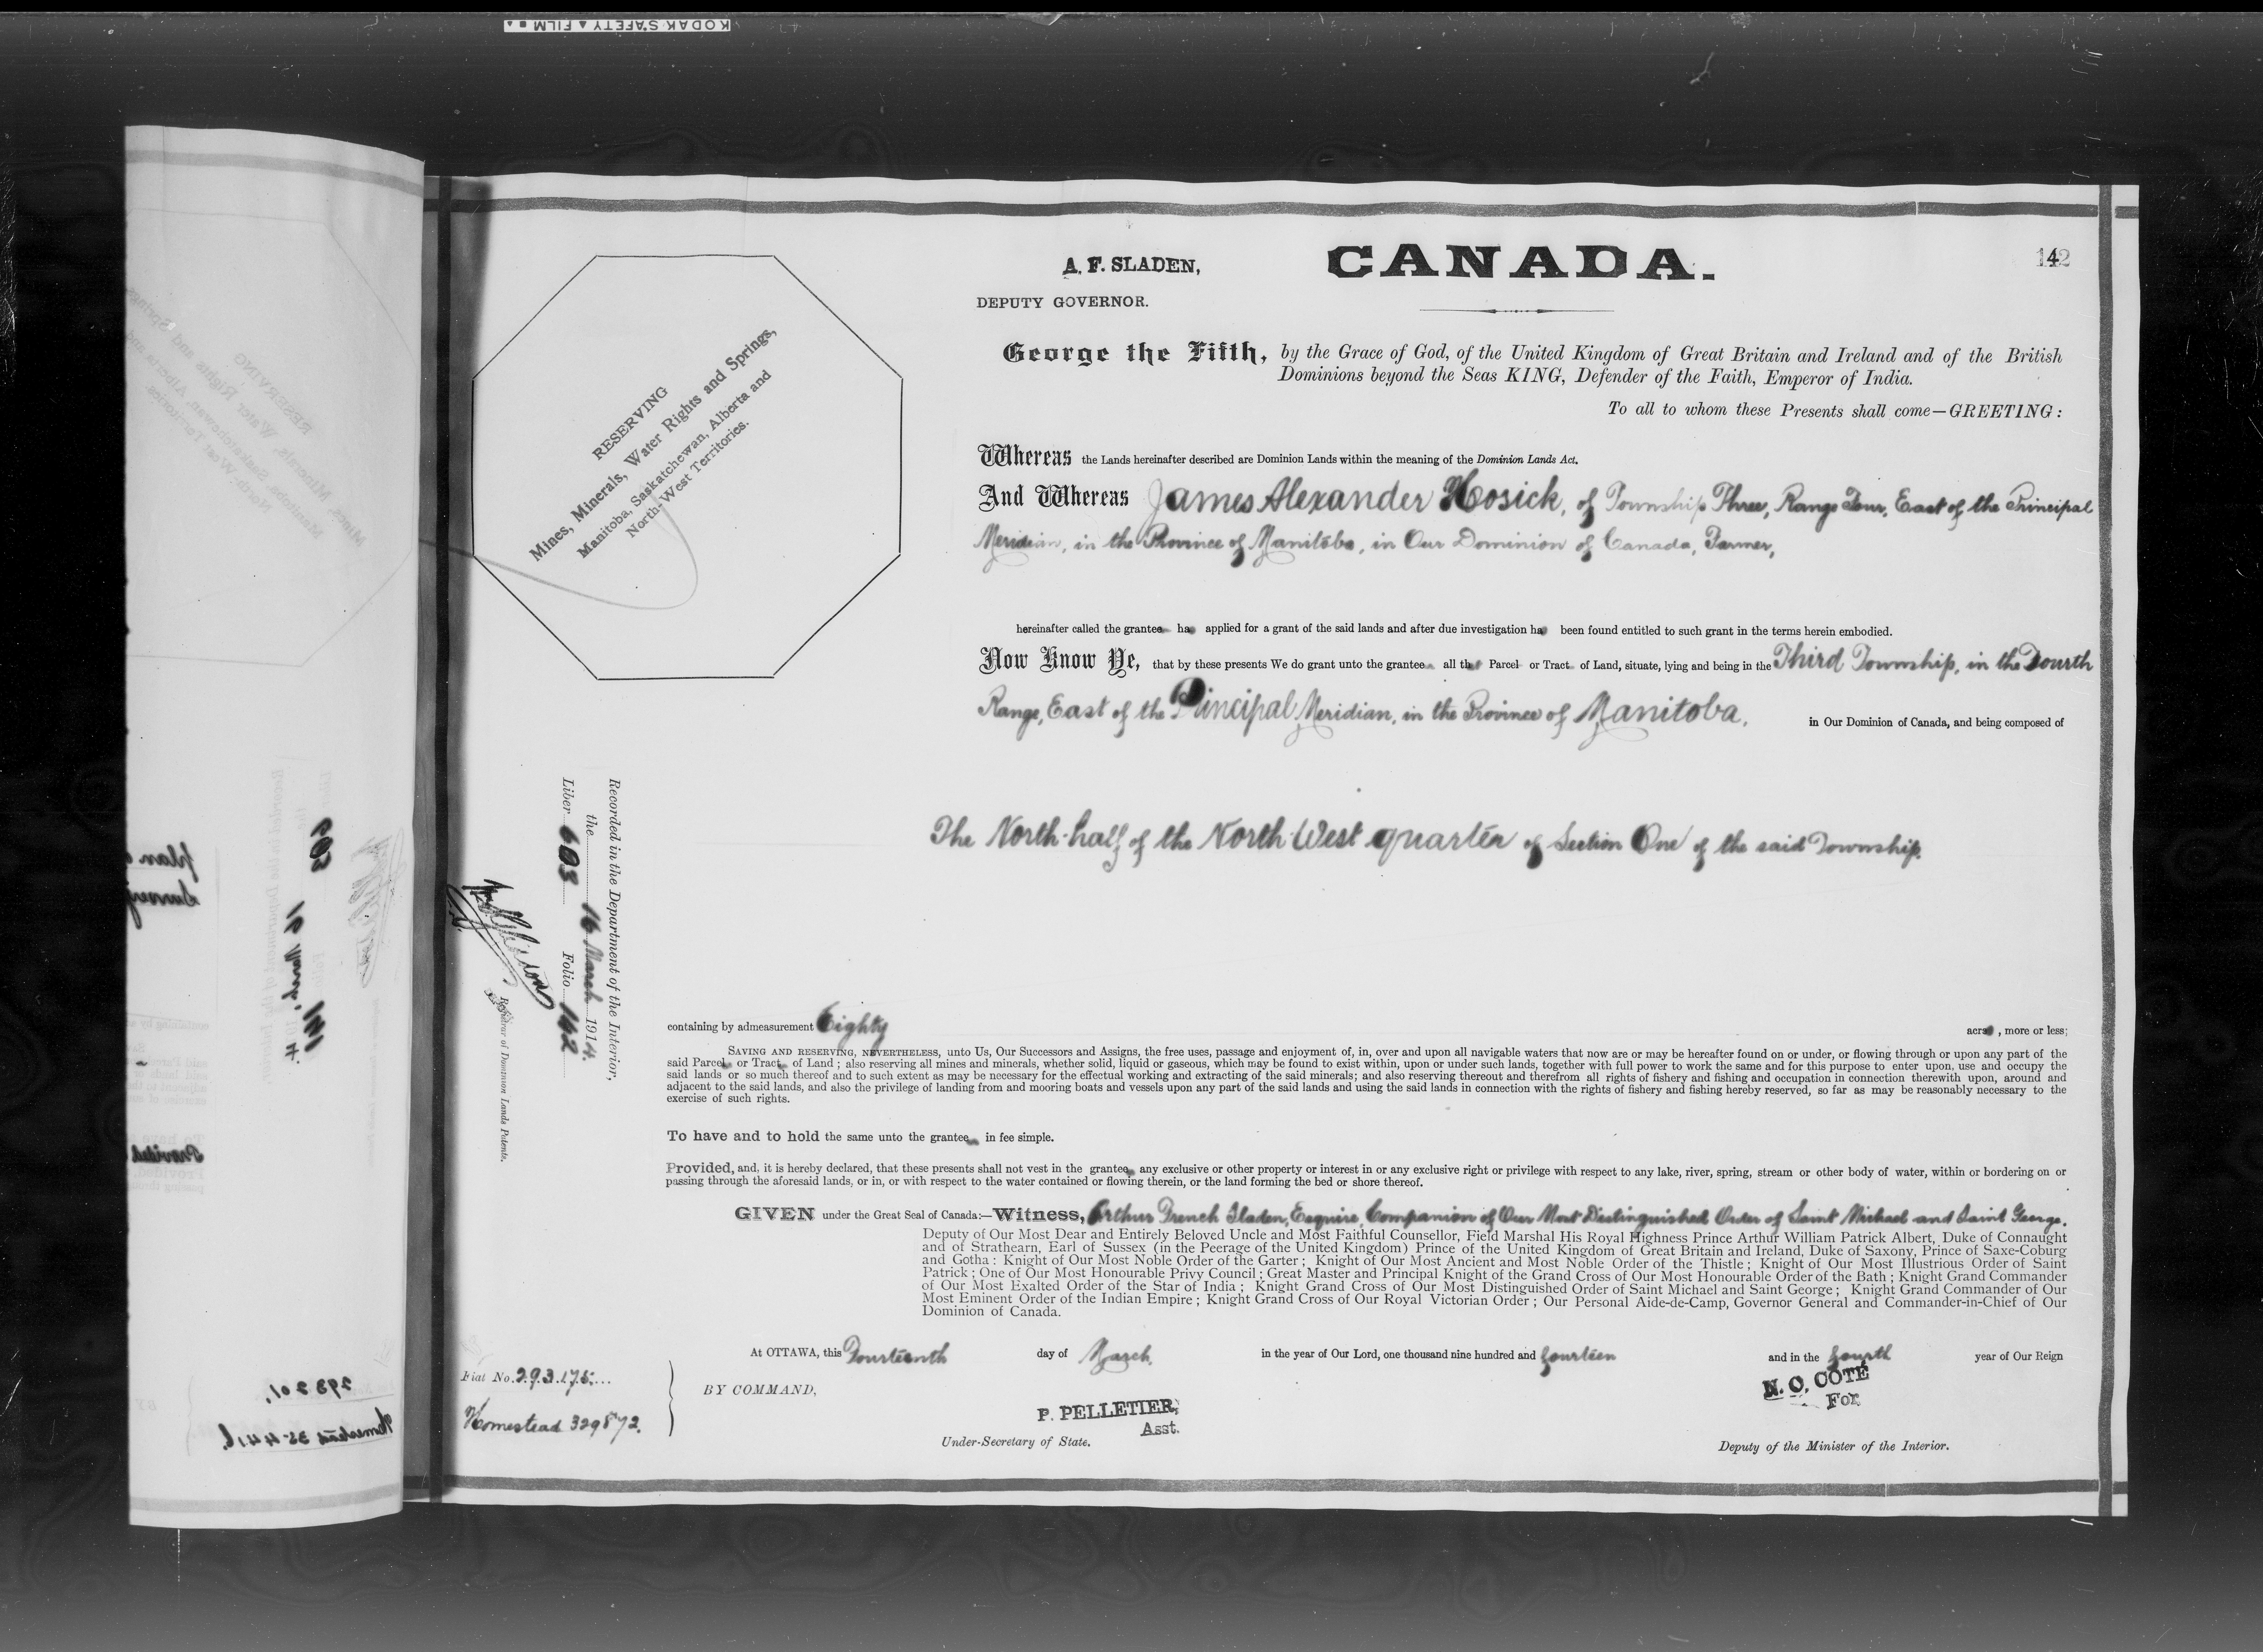 KODAK SAFETY FILM
142
A. F. SLADEN,
DEPUTY GOVERNOR.
CANADA.
RESERVING
Mines, Minerals, Water Rights and Springs,
Manitoba, Saskatchewan, Alberta and
North-West Territories.
George the Fifth, by the Grace of God, of the United Kingdom of Great Britain and Ireland and of the British
Dominions beyond the Seas KING, Defender of the Faith, Emperor of India.
To all to whom these Presents shall come—GREETING:
Whereas the Lands hereinafter described are Dominion Lands within the meaning of the Dominion Lands Act.
And Whereas James Alexander Hosick, of Township Three, Range Four, East of the Principal
Meridian, in the Province of Manitoba, in Our Dominion of Canada, Farmer,
hereinafter called the grantee has applied for a grant of the said lands and after due investigation has been found entitled to such grant in the terms herein embodied.
Now Know Ye, that by these presents We do grant unto the grantee all that Parcel or Tract of Land, situate, lying and being in the Third Township, in the Fourth
Range, East of the Principal Meridian, in the Province of Manitoba, in Our Dominion of Canada, and being composed of
The North-half of the North-West quarter of Section One of the said Township.
Recorded in the Department of the Interior,
the 16 March 1914.
Liber 603 Folio 142
Registrar of Dominion Lands Patents.
containing by admeasurement Eighty acres, more or less;
SAVING AND RESERVING, NEVERTHELESS, unto Us, Our Successors and Assigns, the free uses, passage and enjoyment of, in, over and upon all navigable waters that now are or may be hereafter found on or under, or flowing through or upon any part of the
said Parcel or Tract of Land; also reserving all mines and minerals, whether solid, liquid or gaseous, which may be found to exist within, upon or under such lands, together with full power to work the same and for this purpose to enter upon, use and occupy the
said lands or so much thereof and to such extent as may be necessary for the effectual working and extracting of the said minerals; and also reserving thereout and therefrom all rights of fishery and fishing and occupation in connection therewith upon, around and
adjacent to the said lands, and also the privilege of landing from and mooring boats and vessels upon any part of the said lands and using the said lands in connection with the rights of fishery and fishing hereby reserved, so far as may be reasonably necessary to the
exercise of such rights.
To have and to hold the same unto the grantee in fee simple.
Provided, and, it is hereby declared, that these presents shall not vest in the grantee any exclusive or other property or interest in or any exclusive right or privilege with respect to any lake, river, spring, stream or other body of water, within or bordering on or
passing through the aforesaid lands, or in, or with respect to the water contained or flowing therein, or the land forming the bed or shore thereof.
GIVEN under the Great Seal of Canada:—Witness, Arthur French Sladen, Esquire, Companion of Our Most Distinguished Order of Saint Michael and Saint George.
Deputy of Our Most Dear and Entirely Beloved Uncle and Most Faithful Counsellor, Field Marshal His Royal Highness Prince Arthur William Patrick Albert, Duke of Connaught
and of Strathearn, Earl of Sussex (in the Peerage of the United Kingdom) Prince of the United Kingdom of Great Britain and Ireland, Duke of Saxony, Prince of Saxe-Coburg
and Gotha: Knight of Our Most Noble Order of the Garter; Knight of Our Most Ancient and Most Noble Order of the Thistle; Knight of Our Most Illustrious Order of Saint
Patrick; One of Our Most Honourable Privy Council; Great Master and Principal Knight of the Grand Cross of Our Most Honourable Order of the Bath; Knight Grand Commander
of Our Most Exalted Order of the Star of India; Knight Grand Cross of Our Most Distinguished Order of Saint Michael and Saint George; Knight Grand Commander of Our
Most Eminent Order of the Indian Empire; Knight Grand Cross of Our Royal Victorian Order; Our Personal Aide-de-Camp, Governor General and Commander-in-Chief of Our
Dominion of Canada.
At OTTAWA, this Fourteenth day of March in the year of Our Lord, one thousand nine hundred and fourteen and in the fourth year of Our Reign
Fiat No. 293175
Homestead 329872.
BY COMMAND,
P. PELLETIER,
Asst.
Under-Secretary of State.
N. O. COTÉ
For
Deputy of the Minister of the Interior.